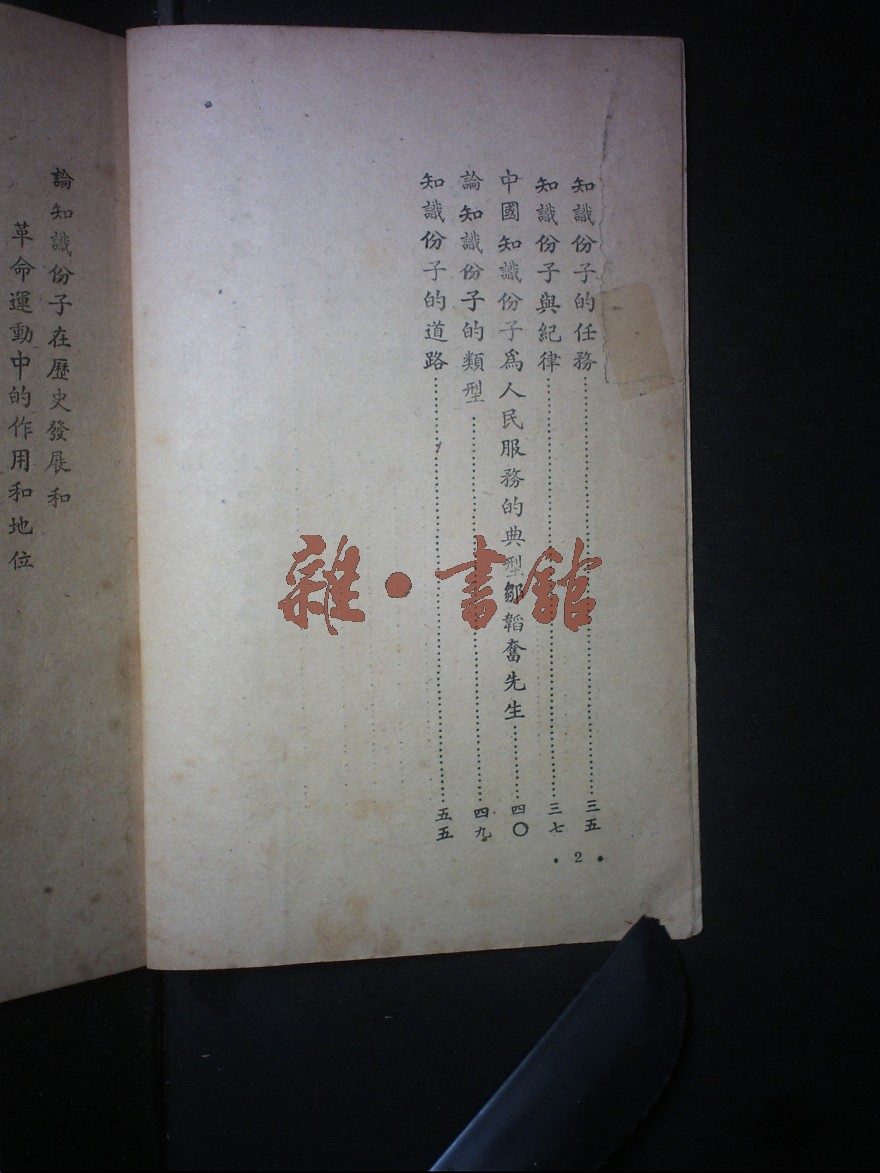 知識份子的任務…………三五
知識份子與紀律…………三七
中國知識份子爲人民服務的典型鄒韜奮先生…………四〇
論知識份子的類型…………四九
知識份子的道路…………五五
• 2 •
論知識份子在歷史發展和
革命運動中的作用和地位
雜•書館